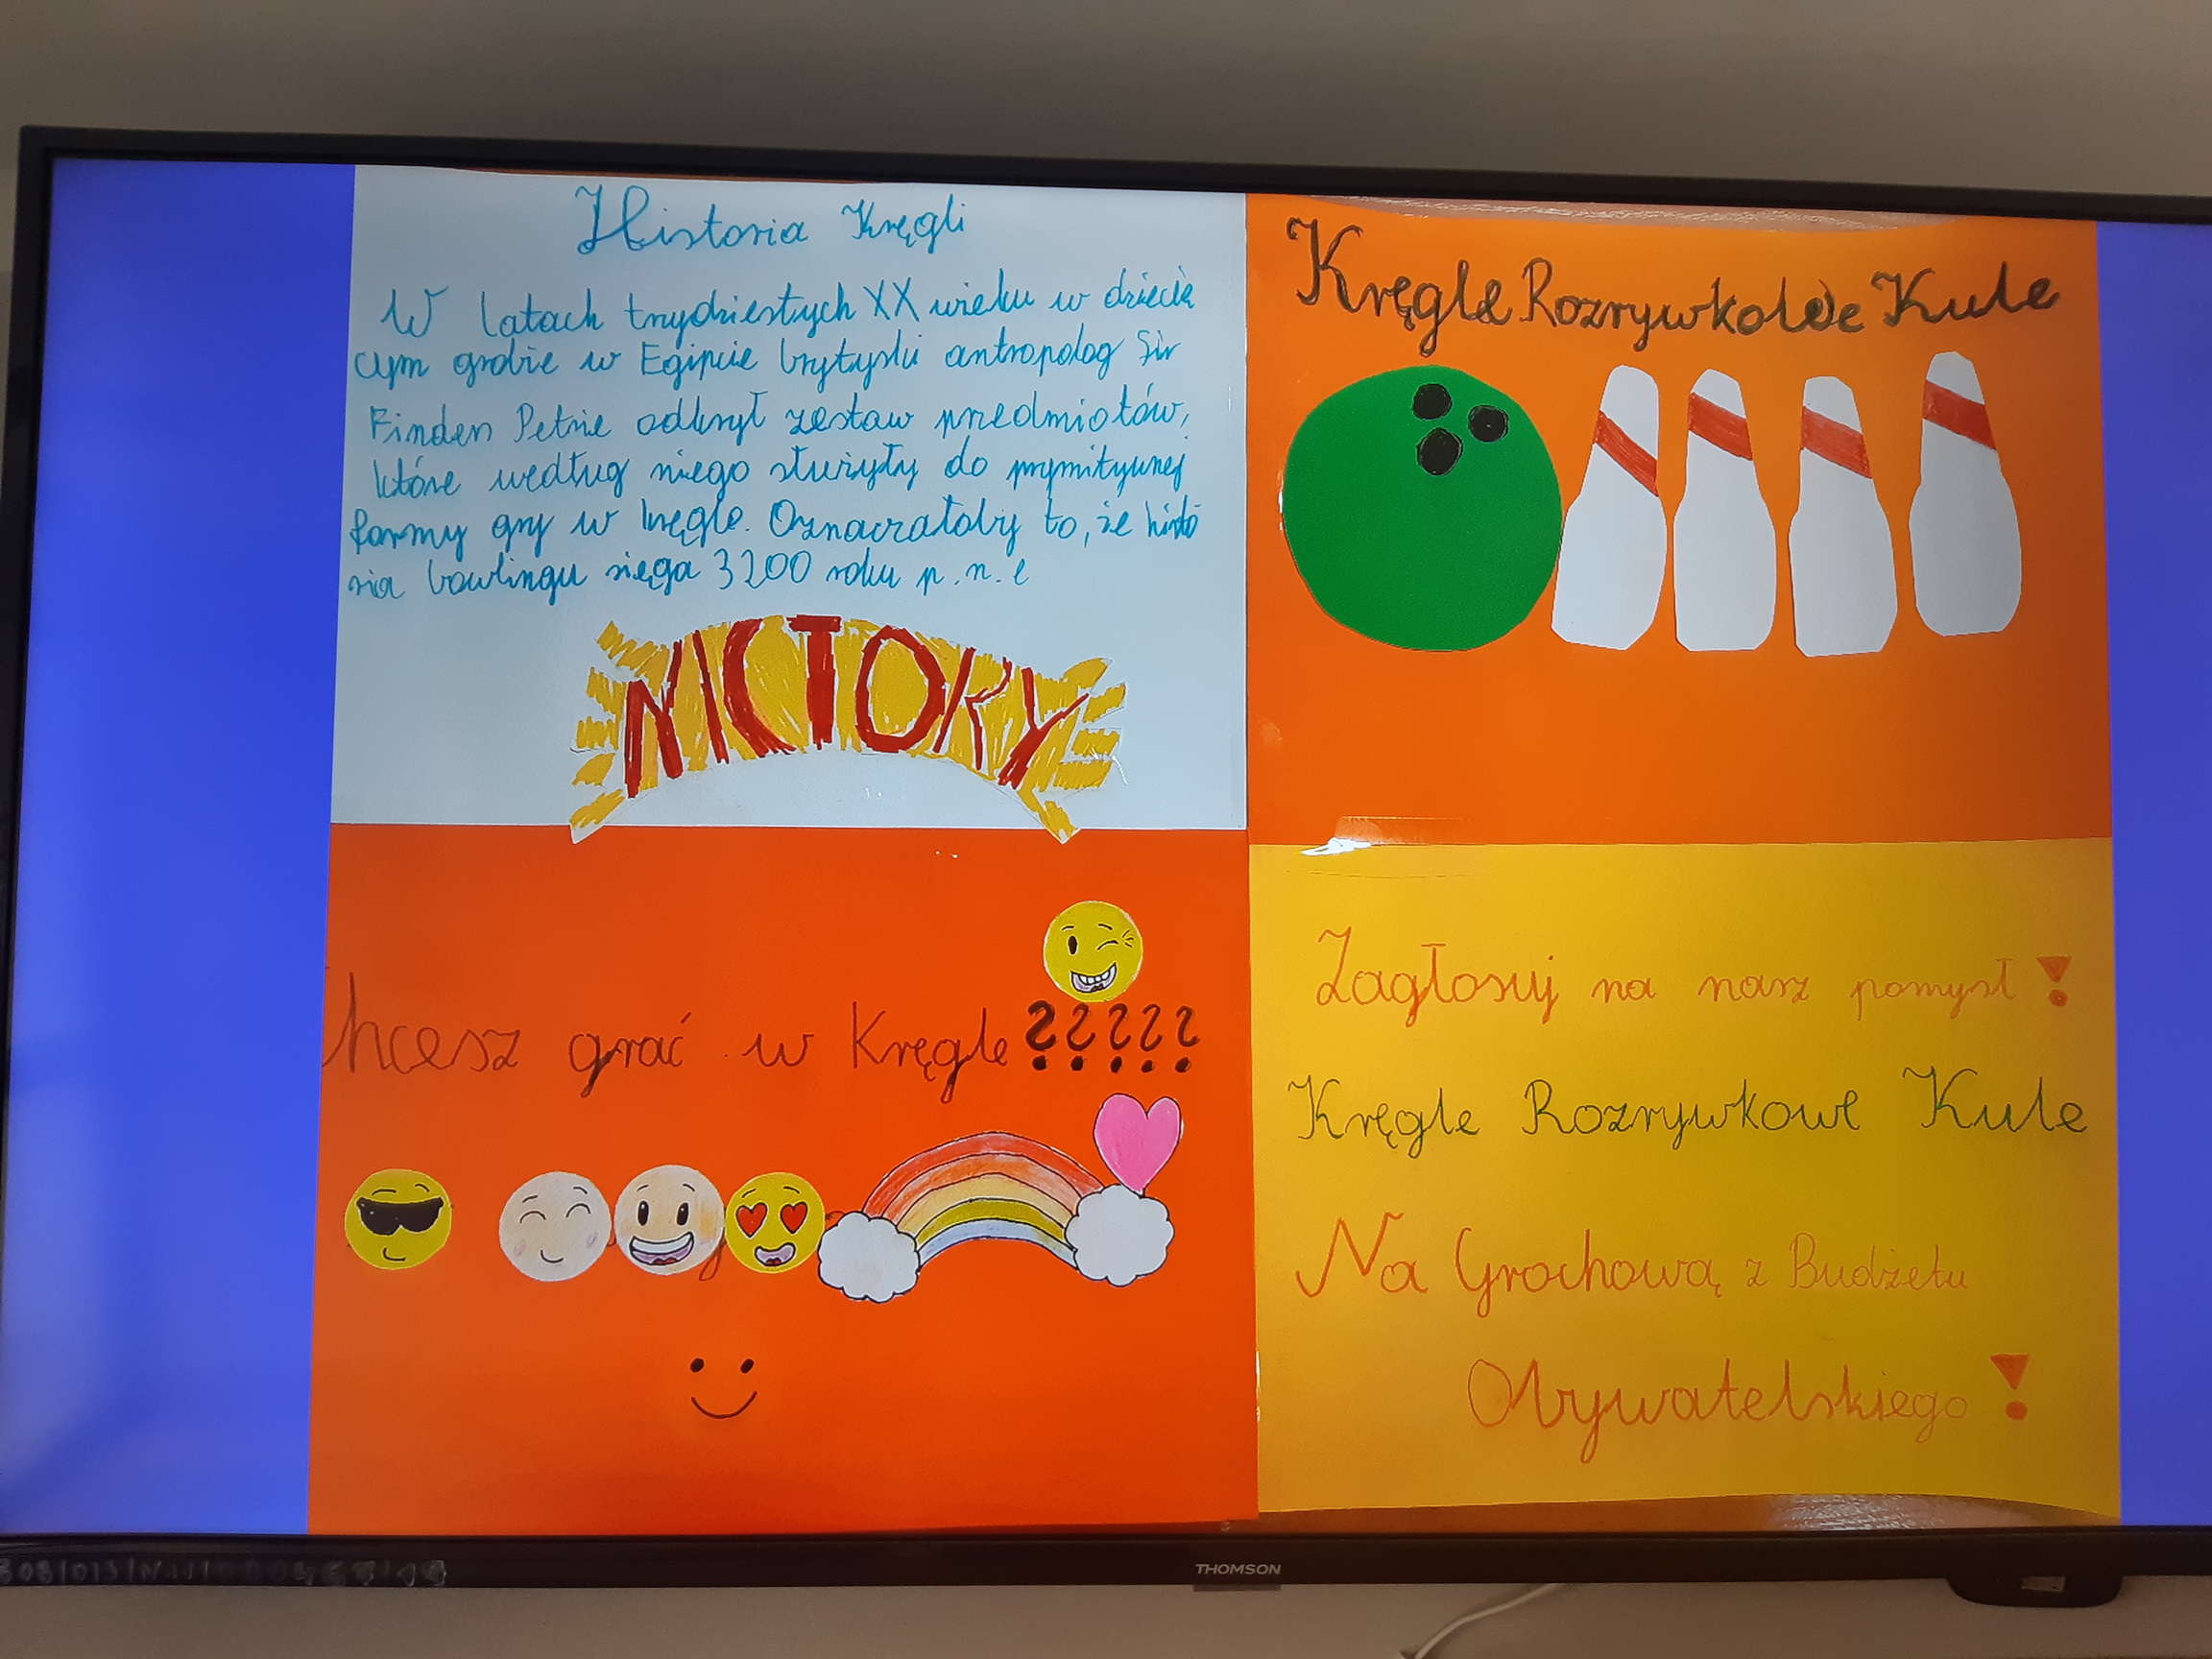 Historia Kręgli
W latach trzydziestych XX wieku w dziecię
cym grobie w Egipcie brytyski antropolog Sir
Finders Petrie odkrył zestaw przedmiotów,
które według niego służyły do prymitywnej
formy gry w kręgle. Oznaczałoby to, że histo
ria bowlingu sięga 3200 roku p.n.e
VICTORY
Kręgle Rozrywkołowe Kule
Chcesz grać w Kręgle ?????
Zagłosuj na nasz pomysł !
Kręgle Rozrywkowe Kule
Na Grochową z Budżetu
Obywatelskiego !
THOMSON